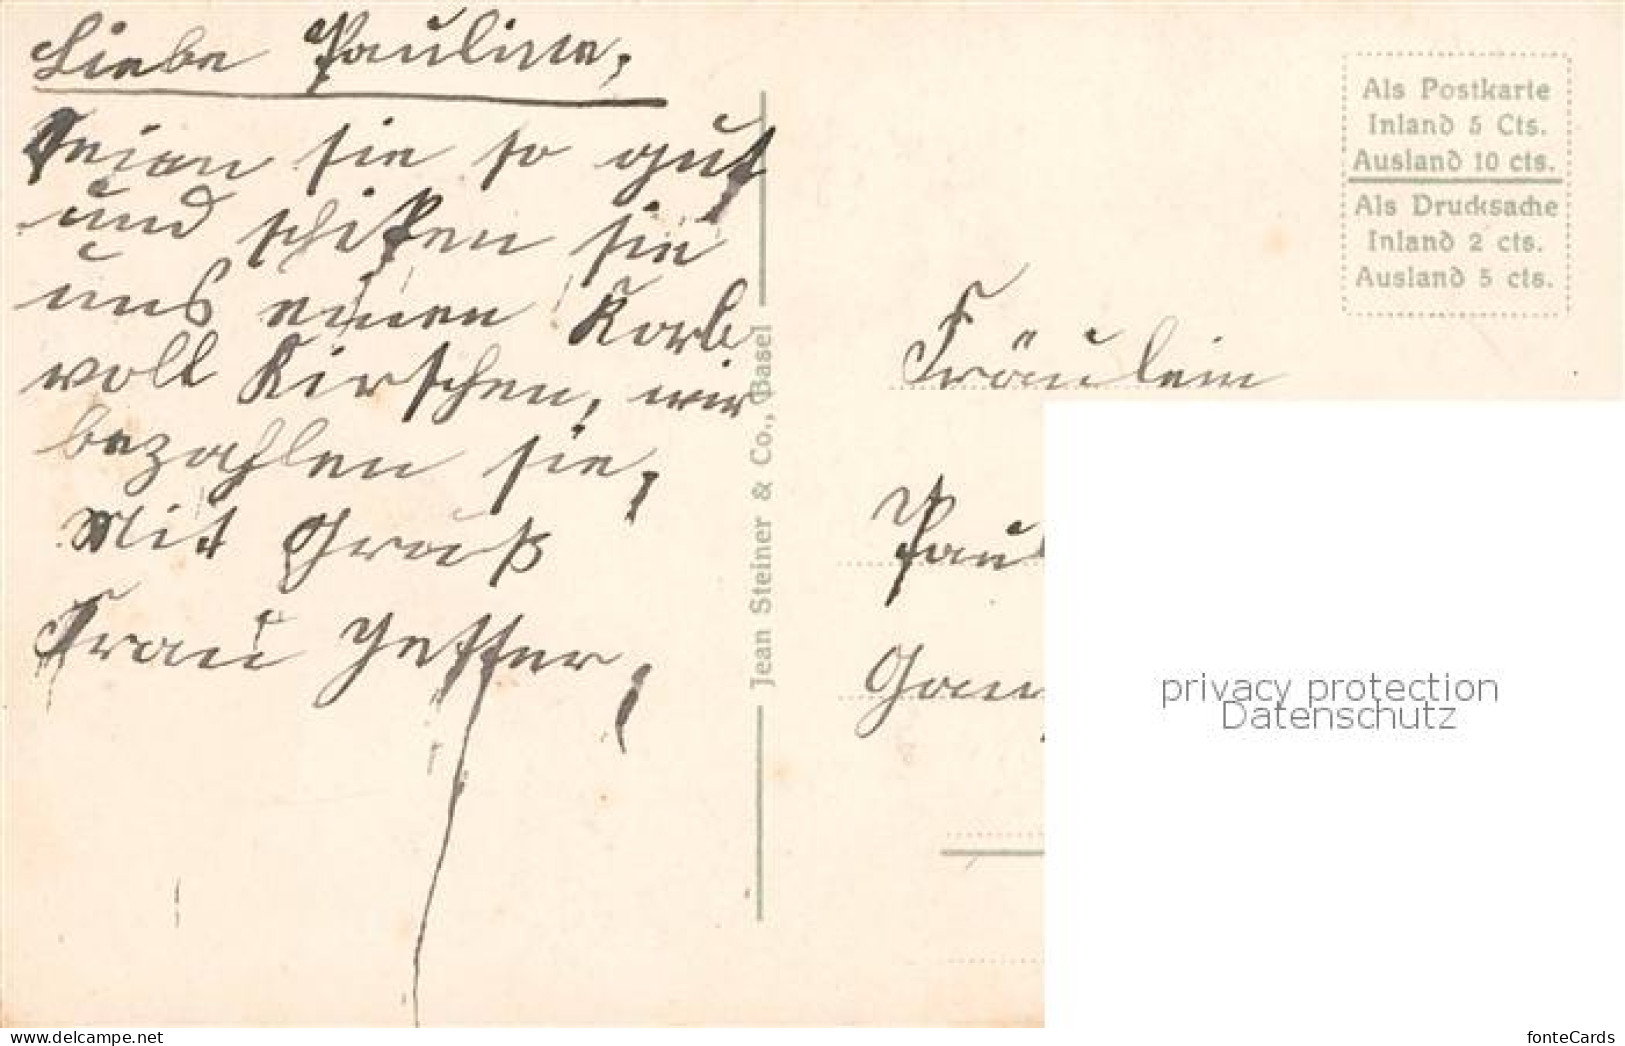 Liebe Pauline,
Seien sie so gut
und schiken sie
uns einen Korb
voll Kirschen, wir
bezahlen sie,
Mit Gruß
Frau
Jean Steiner & Co., Basel
Als Postkarte
Inland 5 Cts.
Ausland 10 cts.
Als Drucksache
Inland 2 cts.
Ausland 5 cts.
Fräulein
Paul
privacy protection
Datenschutz
www.delcampe.net
fonteCards